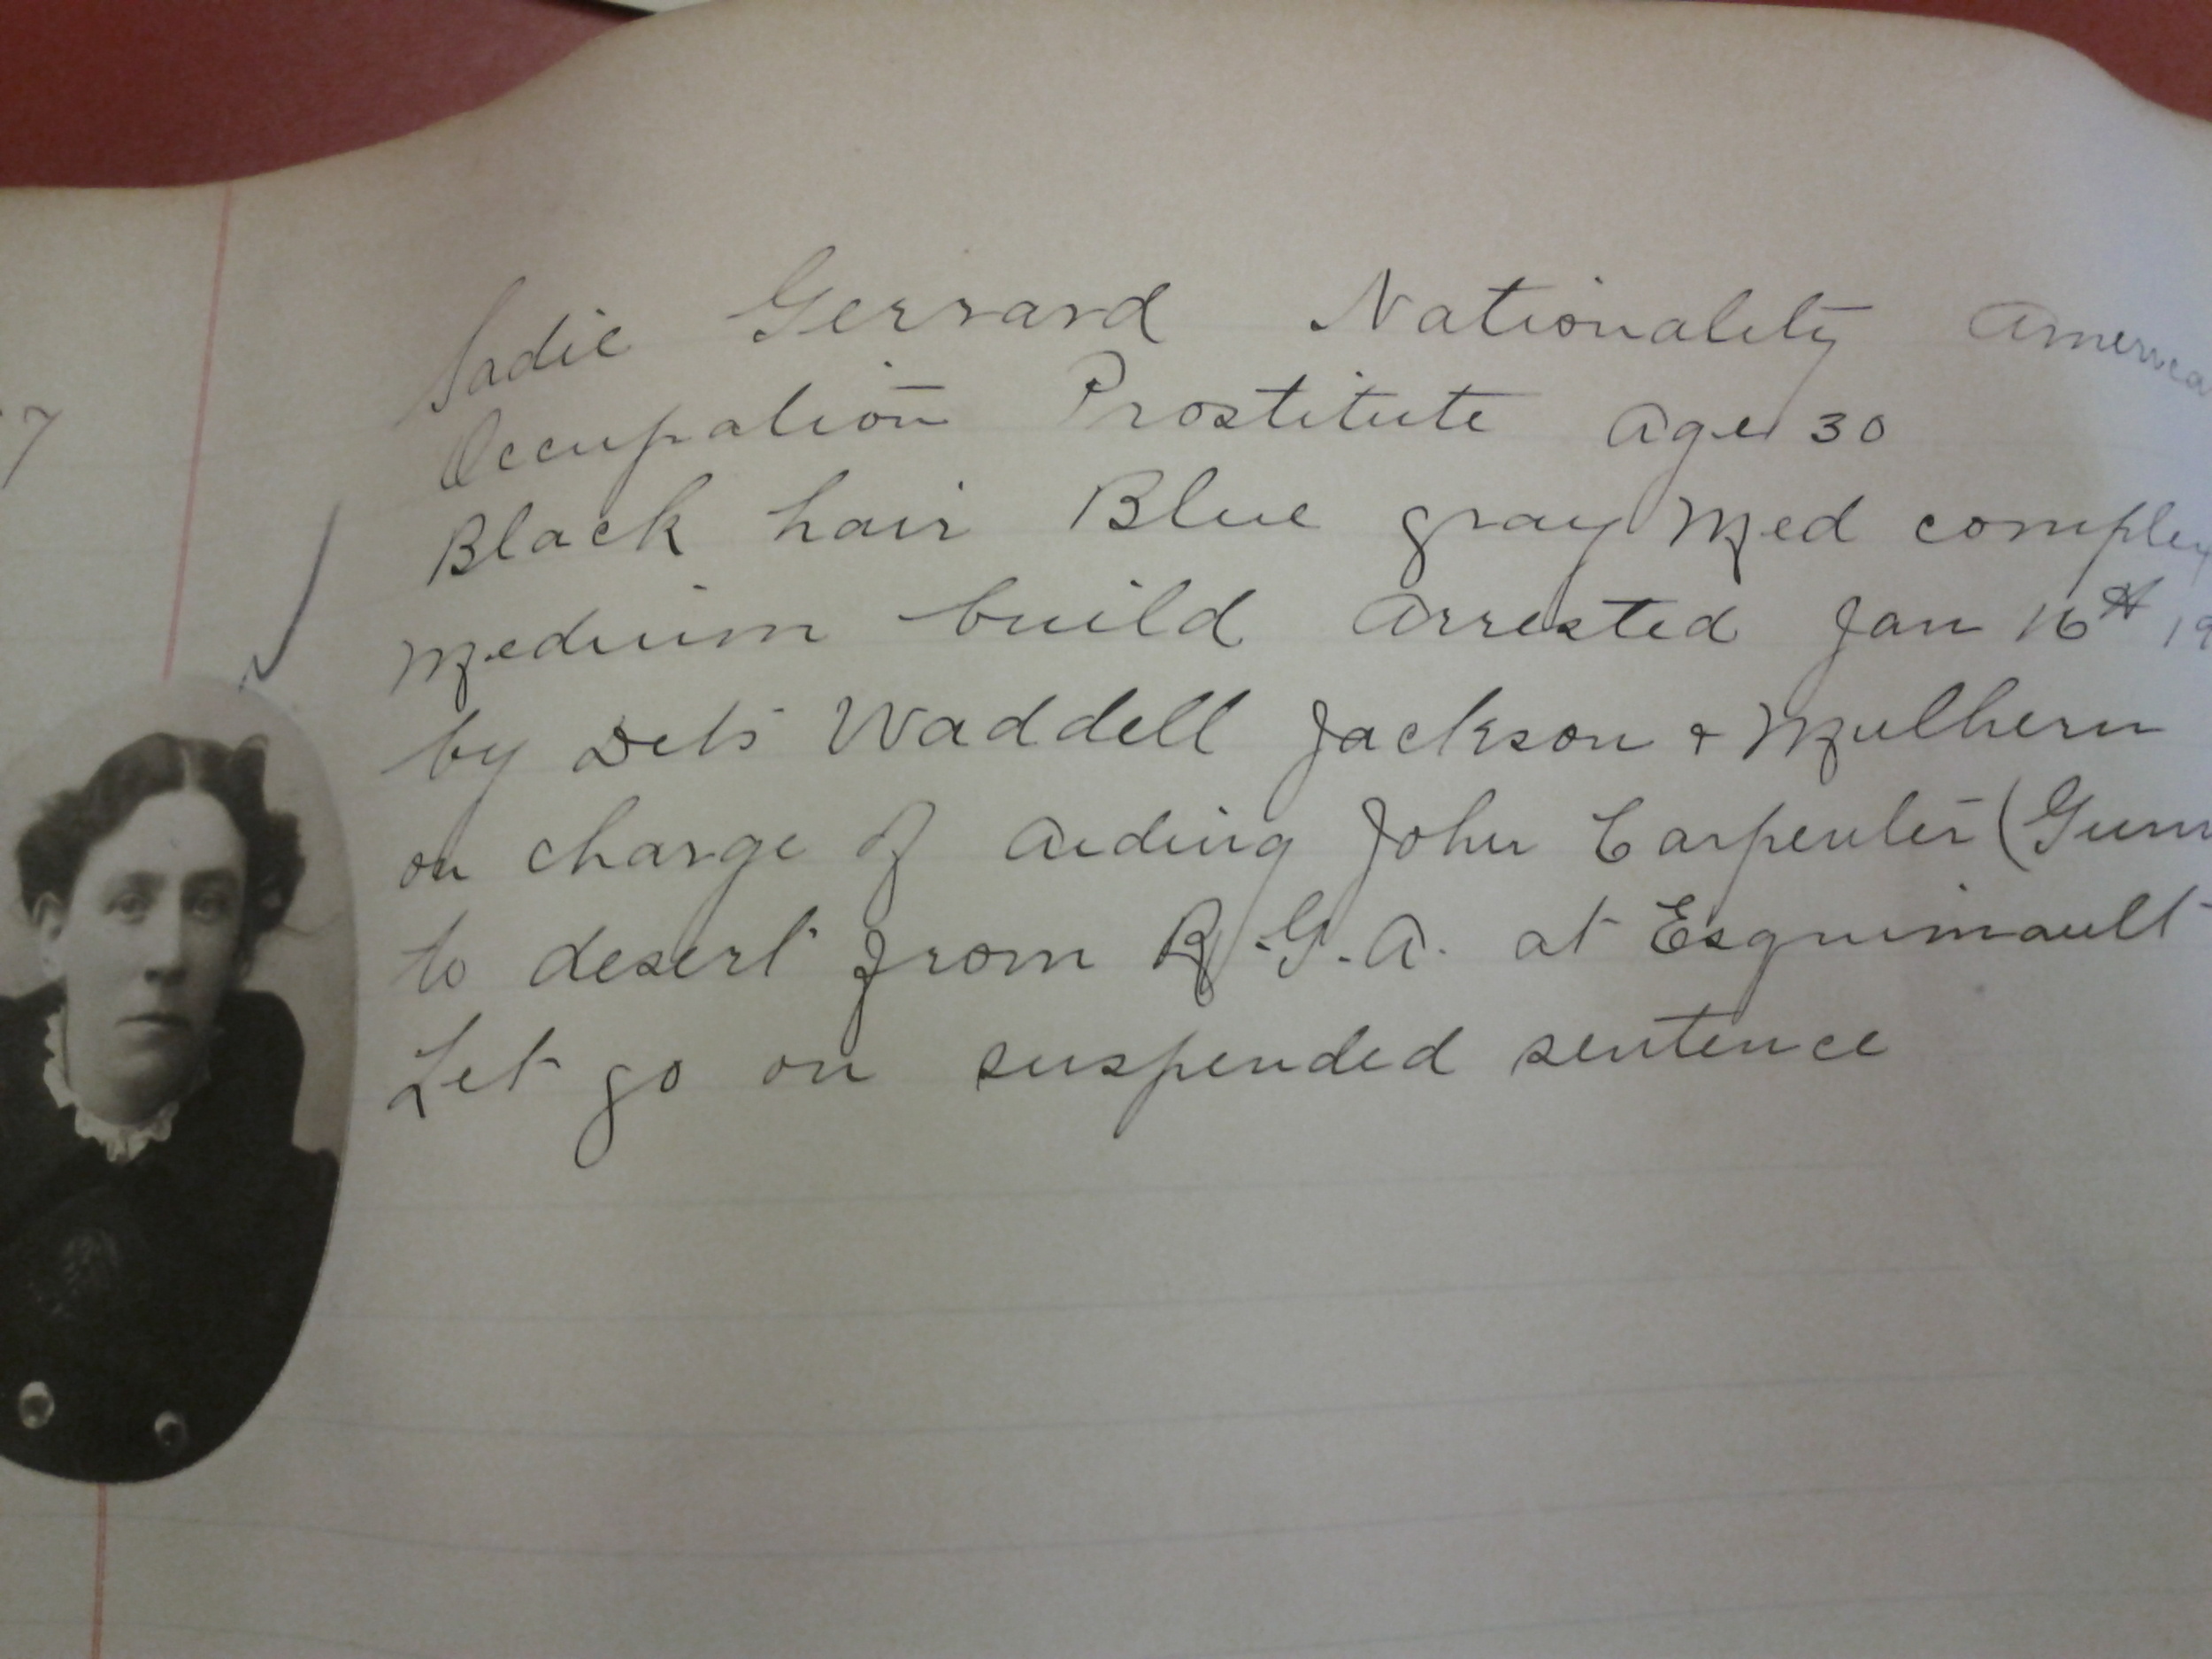 Sadie Gerrard Nationality America
Occupation Prostitute age 30
Black hair Blue gray Med complex
Medium build Arrested Jan 16th 19
by Dets Waddell Jackson + Mulhern
on charge of aiding John Carpenter (Gunn
to desert from R.G.A. at Esquimault
Let go on suspended sentence
7